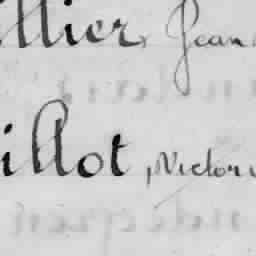 illier, Jean
illot, Victori